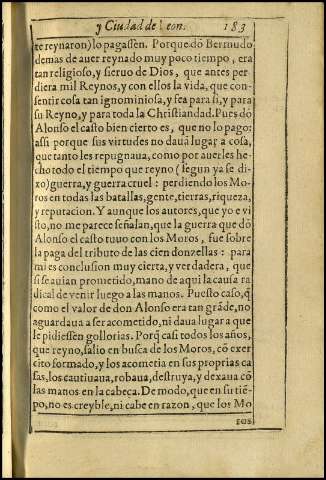 y Ciudad de Leon. 183
te reynaron) lo pagassen. Porque dō Bermudo
demas de auer reynado muy poco tiempo, era
tan religioso, y sieruo de Dios, que antes per-
diera mil Reynos, y con ellos la vida, que con-
sentir cosa tan ignominiosa, y fea para si, y para
su Reyno, y para toda la Christiandad. Pues dō
Alonso el casto bien cierto es, que no lo pago:
assi porque sus virtudes no dauā lugar a cosa,
que tanto les repugnaua, como por auerles he-
cho todo el tiempo que reyno (segun ya se di-
xo) guerra, y guerra cruel: perdiendo los Mo-
ros en todas las batallas, gente, tierras, riqueza,
y reputacion. Y aunque los autores, que yo e vi
sto, no me parece señalan, que la guerra que dō
Alonso el casto tuuo con los Moros, fue sobre
la paga del tributo de las cien donzellas: para
mi es conclusion muy cierta, y verdadera, que
si se auian prometido, mano de aqui la causa ra
dical de venir luego a las manos. Puesto caso, q̄
como el valor de don Alonso era tan grāde, no
aguardaua a ser acometido, ni daua lugar a que
le pidiessen gollorias. Porq̄ casi todos los años,
que reyno, salio en busca de los Moros, cō exer
cito formado, y los acometia en sus proprias ca
sas, los cautiuaua, robaua, destruya, y dexaua cō
las manos en la cabeça. De modo, que en su tiē-
po, no es creyble, ni cabe en razon, que los Mo
ros